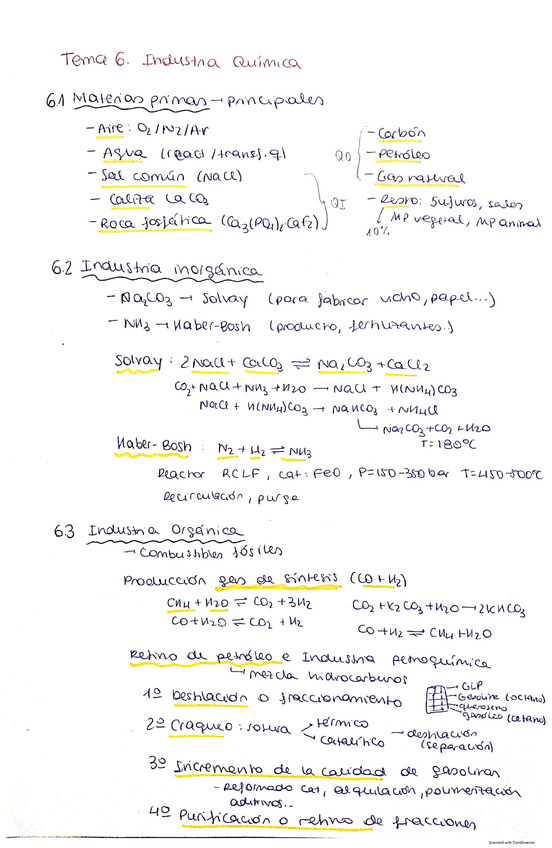 Tema 6. Industria Química
6.1 Materias primas → principales
- Aire: O2/N2/Ar
- Agua (react/transf. q)
- Sal común (NaCl)
- Caliza CaCO3
- Roca fosfática (Ca3(PO4)2 CaF2)
QI
QO
- Carbón
- Petróleo
- Gas natural
- Resto: sulfuros, sales
MP vegetal, MP animal
10%
6.2 Industria inorgánica
- Na2CO3 → Solvay (para fabricar vidrio, papel...)
- NH3 → Haber-Bosh (producto, fertilizantes.)
Solvay: 2NaCl + CaCO3 ⇌ Na2CO3 + CaCl2
CO2 + NaCl + NH3 + H2O → NaCl + H(NH4)CO3
NaCl + H(NH4)CO3 → NaHCO3 + NH4Cl
↳ Na2CO3 + CO2 + H2O
T=180ºC
Haber-Bosh: N2 + H2 ⇌ NH3
Reactor RCLF, cat: FeO, P=150-350 bar T=450-500ºC
Recirculación, purga
6.3 Industria Orgánica
→ Combustibles fósiles
Producción gas de síntesis (CO + H2)
CH4 + H2O ⇌ CO2 + 3H2
CO + H2O ⇌ CO2 + H2
CO2 + K2CO3 + H2O → 2KHCO3
CO + H2 ⇌ CH4 + H2O
Refino de petróleo e Industria petroquímica
↳ mezcla hidrocarburos
1º Destilación o fraccionamiento
GLP
Gasolina (octano)
queroseno
gasóleo (cetano)
2º Craqueo: rotura
térmico
catalítico
→ destilación
(separación)
3º Incremento de la calidad de gasolinas
- Reformado cat, alquilación, polimerización
aditivos..
4º Purificación o refino de fracciones
Scanned with CamScanner